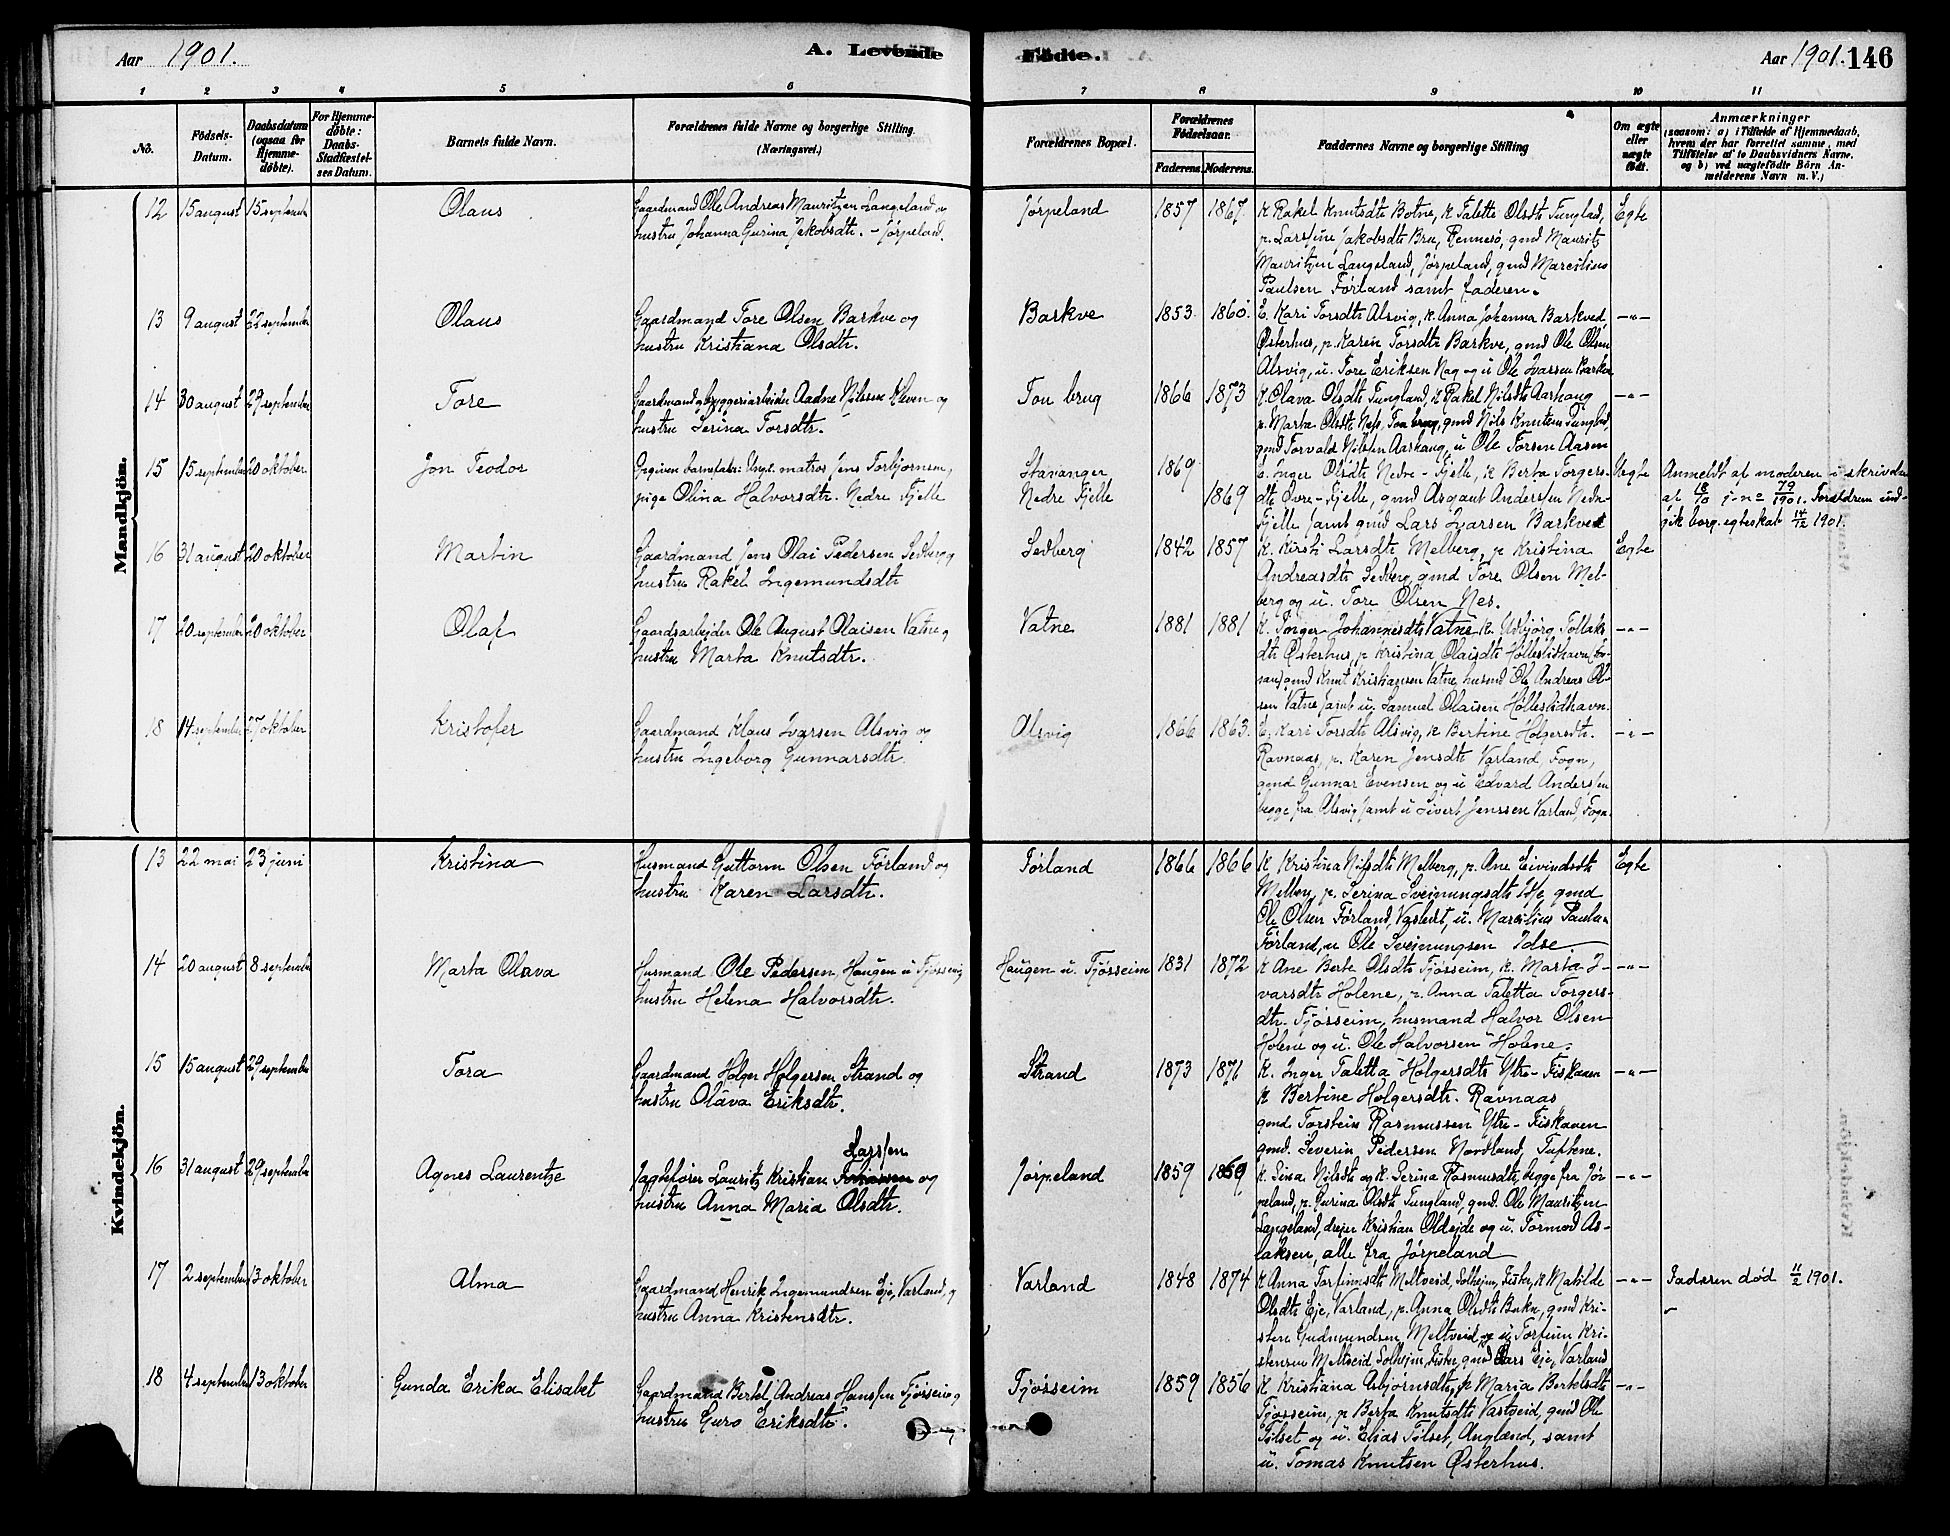 Aar 1901.
A. Levende
Födte.
Aar 1901. 146
1 2 3 4 5 6 7 8 9 10 11
No.
Födsels-
Datum.
Daabsdatum
(ogsaa for
Hjemme-
döbte).
For Hjemme-
döbte:
Daabs-
Stadfæstel-
ses Datum.
Barnets fulde Navn.
Forældrenes fulde Navne og borgerlige Stilling.
(Næringsvei.)
Forældrenes Bopæl.
Forældrenes
Födselsaar.
Faderens. Moderens.
Faddernes Navne og borgerlige Stilling
Om ægte
eller
uægte
födt.
Anmærkninger
(saasom: a) i Tilfælde af Hjemmedaab,
hvem der har forrettet samme, med
Tilföielse af to Daabsvidners Navne,
og b) ved uægtefödte Börn An-
melderens Navn m. V.)
Mandkjön.
12 15 august 15 september Olaus
Gaardmand Ole Andreas Mauritzen Langeland og
hustru Johanna Gurina Jakobsdtr. - Jørpeland.
Jørpeland 1857 1867.
K Rakel Knutsdtr Botne, K Taletta Olsdtr Tungland,
p. Larsine Jakobsdtr Bru, Rennesø, gmd Mauritz
Mauritzen Langeland, Jørpeland, gmd Marcilius
Paulsen Førland samt faderen.
Egte
13 9 august 22 september Olaus
Gaardmand Tore Olsen Barkve og
hustru Kristiana Olsdtr.
Barkve 1853. 1860.
E. Kari Torsdtr Alsvig, K. Anna Johanna Barkved,
Østerhus, p. Karen Torsdtr Barkve, gmd Ole Olsen
Alsvig, u. Tore Eriksen Nag og u Ole Ivarsen Barkve
-"-
14 30 august 29 september Tore
Gaardmand og bryggeriarbeider Aadne Nilssen Kleven og
hustru Serina Torsdtr.
Tou brug 1866 1873
K. Olava Olsdtr Tungland, K Rakel Nilsdtr Aarhaug
p. Marta Olsdtr Nes, Tou brug, gmd Nils Knutsen Tungland
gmd Torvald Nilsen Aarhaug, u Ole Torsen Aasen
-"-
15 15 september 20 oktober Jon Teodor
Opgiven barnefader: Ungk. matros Jens Torbjørnsen,
pige Olina Halvorsdtr. Nedre Fjelle
Stavanger
Nedre Fjelle
1869
1869
e. Inger Olsdtr Nedre-Fjelle, K Berta Torgers-
dtr Øvre-Fjelle, gmd Asgaut Anderssen Nedre
Fjelle samt gmd Lars Ivarsen Barkved
Uegte
Anmeldt af moderen i skrivelse
af 18/10 j-no 79/1901. Forældrene ind-
gik borg. egteskab 14/12 1901.
16 31 august 20 oktober Martin
Gaardmand Jens Olai Pedersen Sedberg og
hustru Rakel Ingemundsdtr
Sedberg 1842 1857
K. Kirsti Larsdtr Melberg, p Kristina
Andreasdtr Sedberg, gmd Tore Olsen Mel-
berg og u. Tore Olsen Nes.
Egte
17 20 september 20 oktober Olaf
Gaardsarbejder Ole August Olaisen Vatne og
hustru Marta Knutsdtr.
Vatne 1881 1881
K. Inger Johannesdtr Vatne K. Udbjørg Tollaks
dtr Østerhus, p Kristina Olaisdtr Høllesli̇dhavn
gmd Knut Kristiansen Vatne, husmd Ole Andreas Ol-
sen Vatne samt u. Samuel Olaisen Hølleslidhavn.
-"-
18 14 september 27 oktober Kristofer
Gaardmand Klaus Ivarsen Alsvig og
hustru Ingeborg Gunnarsdtr.
Alsvig 1866 1863.
E. Kari Torsdtr Alsvig, K Bertine Holgersdtr.
Ravnaas, p. Karen Jensdtr Varland, Fogn,
gmd Gunnar Evensen og u Edvard Anderssen
begge fra Alsvig samt u Sivert Jenssen Varland, Fogn.
-"-
Kvindekjön.
13 22 mai 23 juni Kristina
Husmand Guttorm Olsen Førland og
hustru Karen Larsdtr.
Førland 1866 1866
K Kristina Nilsdtr Melberg, p. Ane Eivindsdtr
Melberg, p. Serina Sveinungsdtr Idse, gmd
Ole Olsen Førland, u. Marcilius Paulsen
Førland, u Ole Sveinungsen Idse
Egte
14 20 august 8 september Marta Olava
Husmand Ole Pedersen, Haugen u Tjøsseim,
hustru Helena Halvorsdtr.
Haugen u. Tjøsseim 1831 1872
K Ane Berte Olsdtr Tjøsseim, K. Marta I-
varsdtr Holene, p. Anna Taletta Torgers-
dtr. Tjøsseim, husmand Halvor Olsen
Holene og u. Ole Halvorsen Holene.
-"-
15 15 august 29 september Tora
Gaardmand Holger Holgersen Strand og
hustru Olava Eriksdtr.
Strand 1873 1871
K. Inger Taletta Holgersdtr Ytre-Fiskaaen
K Bertine Holgersdtr. Ravnaas
gmd. Torstein Rasmussen Ytre-Fiskaaen
gmd. Severin Pedersen Nordland, Tuftene.
-"-
16 31 august 29 september Agnes Laurentze
Larssen
Jagtefører Lauritz Kristian og
hustru Anna Maria Olsdtr.
Jørpeland 1859 1869
K. Sina Nilsdtr og K. Serina Rasmusdtr, begge fra Jør
peland, p. Gurina Olsdtr Tungland, gmd. Ole Mauritzen
Langeland, drejer Kristian Oldejde og u. Tormod As-
laksen, alle fra Jørpeland
-"-
17 2 september 13 oktober Alma
Gaardmand Henrik Ingemundsen Eje, Varland, og
hustru Anna Kristensdtr.
Varland 1848 1874
K Anna Torfinnsdtr Meltveid, Solhejm, Fister, K Matilde
Olsdtr Eje, Varland, p. Anna Olsdtr Bukn, gmd Kri-
sten Gudmundsen Meltveid og u Torfinn Kri-
stensen Meltveid, Solhejm, Fister, gmd Lars Eje, Varland
-"-
Faderen død 11/2 1901.
18 4 september 13 oktober Gunda Erika Elisabet
Gaardmand Bertel Andreas Hanssen Tjøsseim og
hustru Guro Eriksdtr.
Tjøsseim 1859 1856
K Kristiana Asbjørnsdtr, p Maria Bertelsdtr
Tjøsseim, p Berta Knutsdtr Vastveid, gmd Ole
Tølset og u. Elias Tølset, Angland, samt
u. Tomas Knutsen Østerhus.
-"-